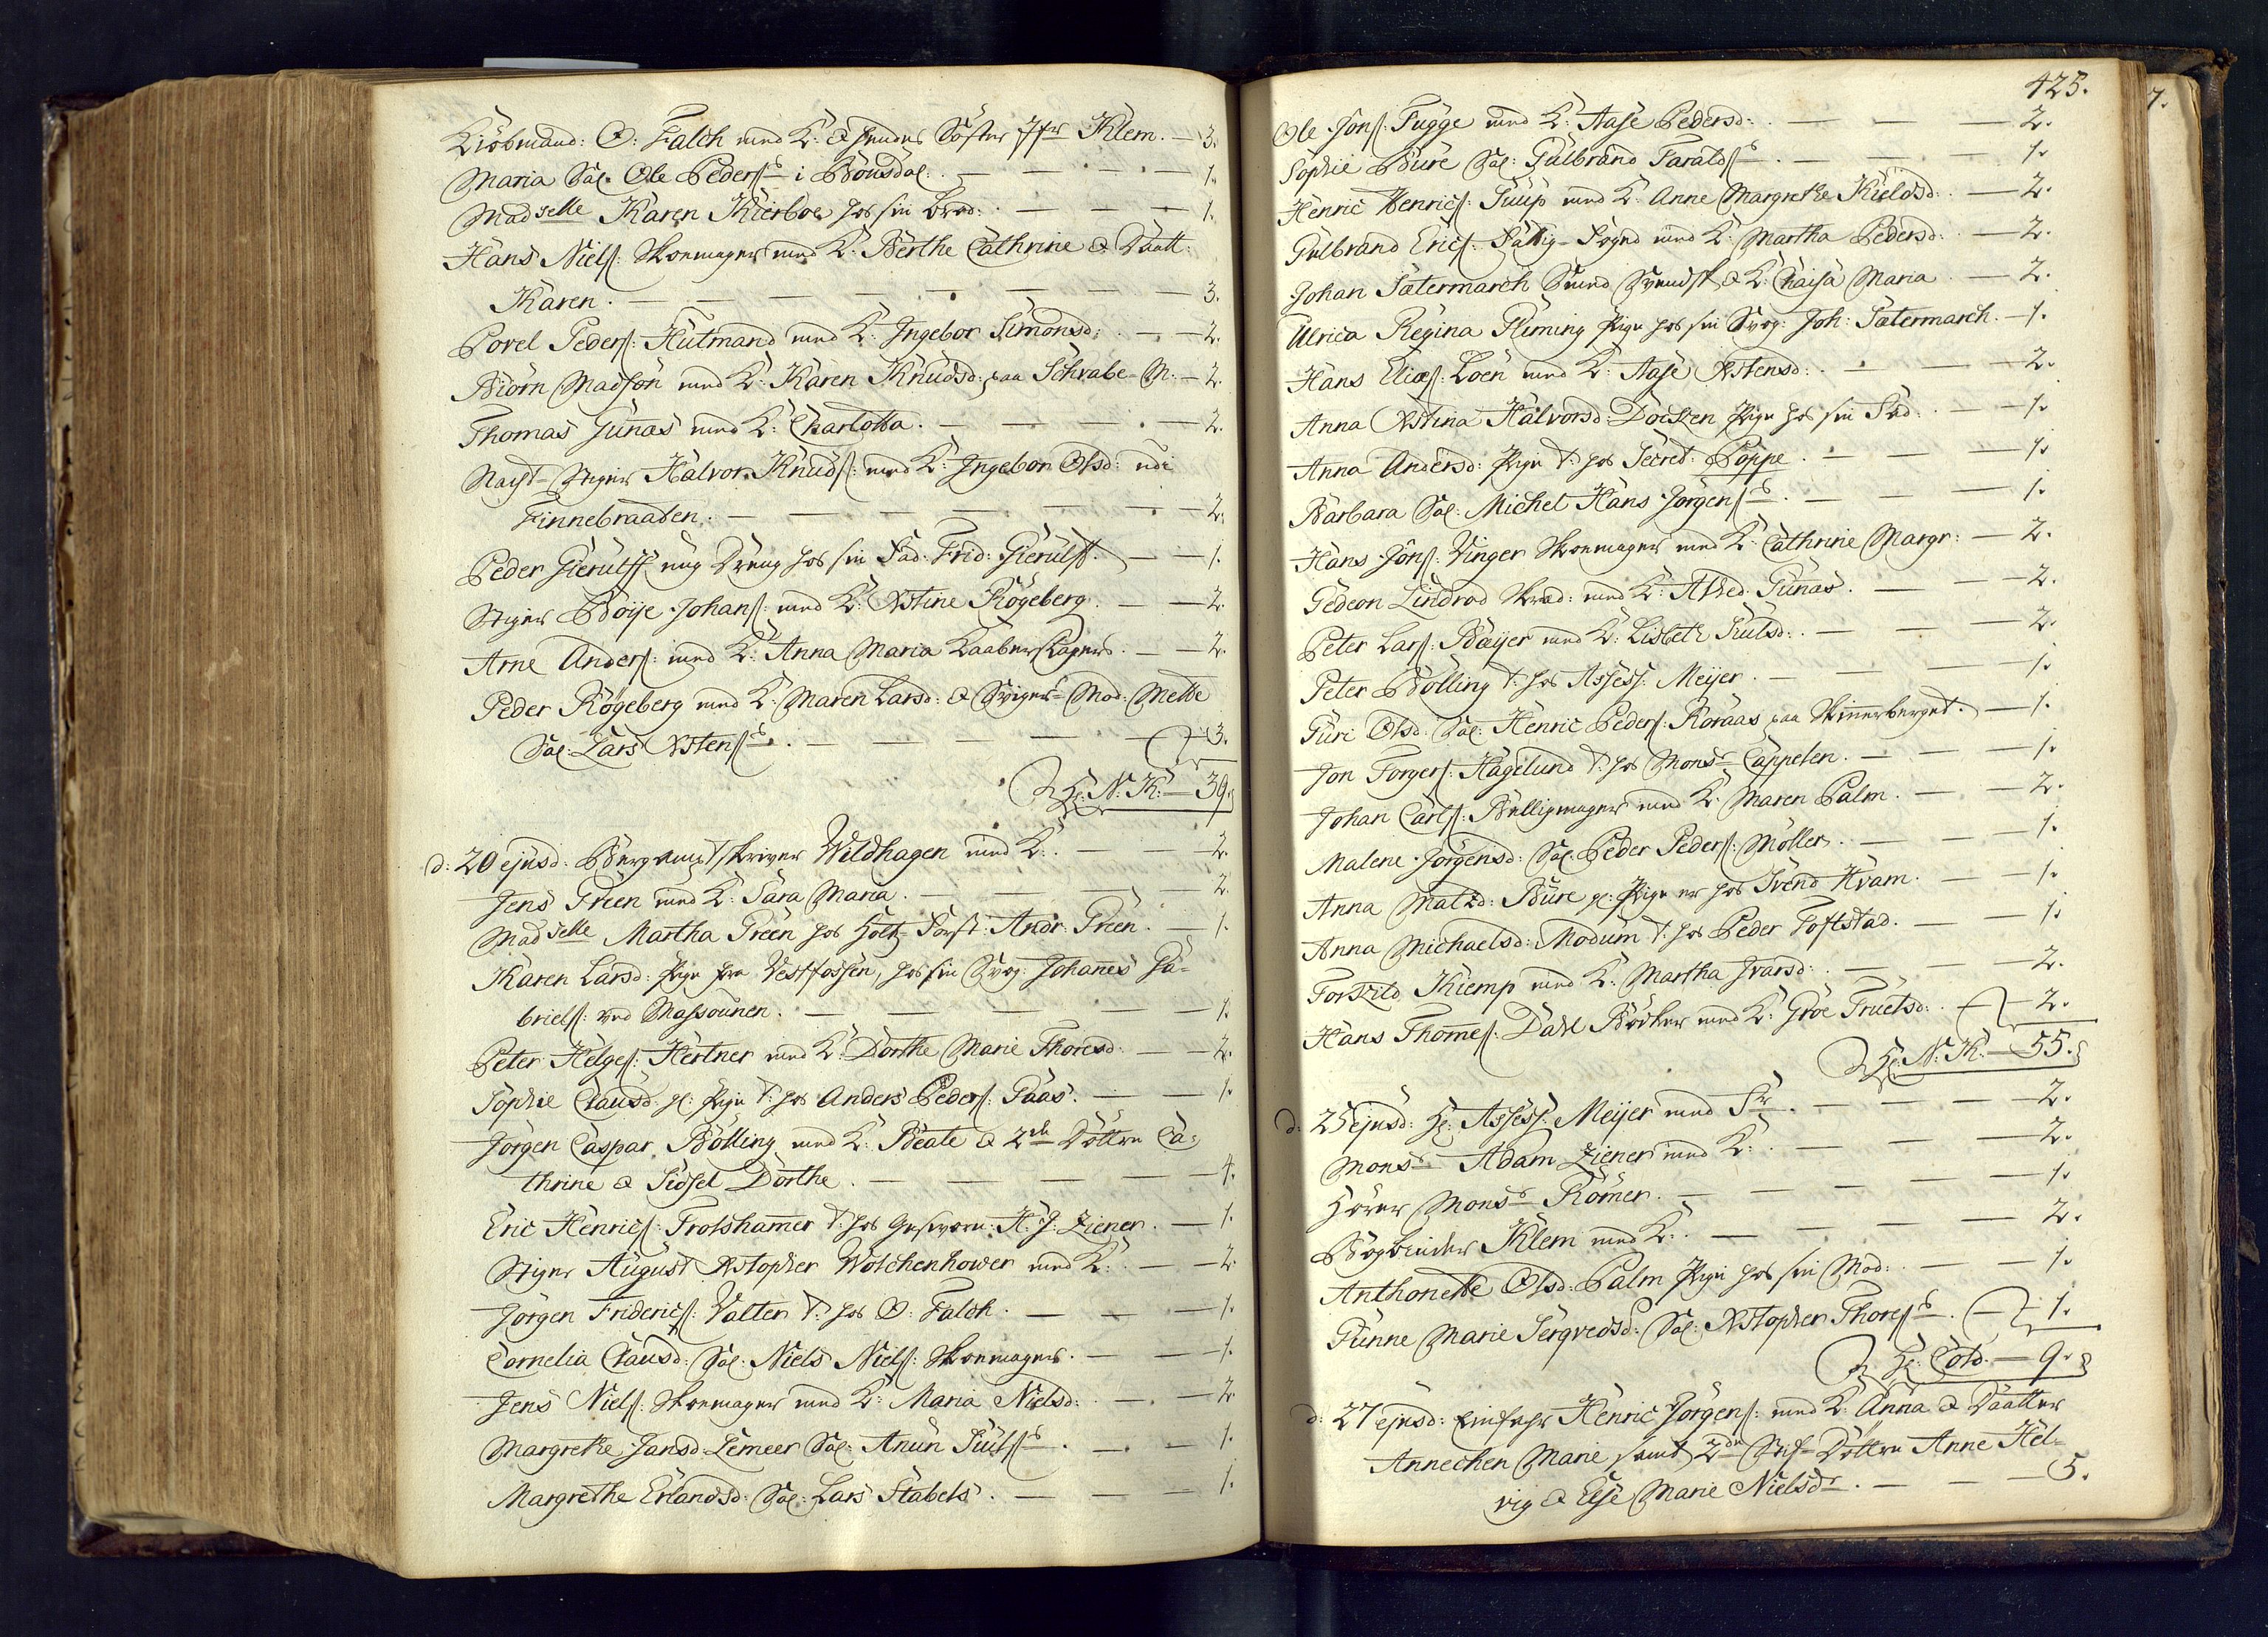 Kiøbmand: O: Falch med K: & hendes Søster Jfr Klem. — 3.
Maria Sal. Ole Peders: i Bonsdal. — 1.
Madselle Karen Kierboe hos sin Brod: — 1.
Hans Niels: Skoemager med K: Berthe Cathrine & Daatt:
Karen. — 3.
Povel Peders: Hutmand med K: Ingebor Simonsd: — 2.
Biörn Madsön med K: Karen Knudsd: paa Schrabe-M. — 2.
Thomas Junas med K: Charlotta. — 2.
Nagt-Stiger Halvor Knuds: med K: Ingebor Olsd: udi
Finnebraaten. — 2.
Peder Gierulff ung Dreng hos sin Fad: Frid: Gierulff. — 1.
Stiger Boije Johans: med K: Xstine Rögeberg. — 2.
Arne Anders: med K: Anna Maria Kaaberslagers. — 2.
Peder Rögeberg med K: Maren Larsd: & Sviger-Mod: Mette
Sal: Lars Xstens: — 3.
H: N: K: — 39.
d: 20 ejusd: Bergamtskriver Wildhagen med K: — 2.
Jens Green med K: Sara Maria. — 2.
Madselle Martha Green hos Holtz-Först: Andr: Green. — 1.
Karen Larsd: Pige fra Vestfossen, hos sin Svog: Johannes Ga-
briels: ved Massounen. — 1.
Peter Helges: Hertner med K: Dorthe Marie Thoresd: — 2.
Sophie Clausd: gl: Pige t: hos Anders Peders: Gaas. — 1.
Jörgen Caspar Bölling med K: Beate & 2de Döttre Ca-
thrine & Sidsel Dorthe. — 4.
Eric Henrics: Trolshammer t: hos Gesvorn: H: J: Ziener. — 1.
Stiger August Xstopher Wolchenhower med K: — 2.
Jörgen Friderics: Valter t: hos O: Falch. — 1.
Cornelia Clausd: Sal: Niels Niels: Skoemagers. — 1.
Jens Niels: Skoemager med K: Maria Nielsd: — 2.
Margrethe Jansd: Lemeer Sal: Anun Juuls: — 1.
Margrethe Erlandsd: Sal: Lars Stabels. — 1.
425.
7.
Ole Jons: Fugge med K: Aase Pedersd: — 2.
Sophie Bure Sal: Gulbrand Taralds: — 1.
Henric Henrics: Juup med K: Anne Margrethe Kieldsd: — 2.
Gulbrand Erics: Fattig-Fogd med K: Martha Pedersd: — 2.
Johan Sætermarch Svensk & K: Chaisa Maria — 2.
Ulrica Regina Fleming Pige hos sin Svog: Joh: Sætermarch. — 1.
Hans Elias: Loen med K: Aase Xstensd: — 2.
Anna Xstina Halvorsd: Docken Pige hos sin Fad: — 1.
Anna Andersd: Pige t: hos Secret: Poppe. — 1.
Barbara Sal: Michel Hans Jörgens: — 1.
Hans Jöns: Vinger Skoemager med K: Cathrine Margr: — 2.
Gedeon Lindrod Skred: med K: Alhed Gunas. — 2.
Peter Lars: Bæijer med K: Lisbeth Juulsd: — 2.
Peter Bölling t: hos Assess: Meijer. — 1.
Guri Olsd: Sal: Henric Peders: Roraas paa Skinnerberget. — 1.
Jon Torgers: Hagelund t: hos Monsr Cappelen. — 1.
Johan Carls: Belligmager med K: Maren Palm. — 2.
Malene Jörgensd: Sal: Peder Peders: Möllers. — 1.
Anna Matzd: Bure gl: Pige er hos Svend Kvam. — 1.
Anna Michaelsd: Modum t: hos Peder Toftstad. — 1.
Torkild Kiemp med K: Martha Ivarsd: — 2.
Hans Thomes: Dahl Bödker med K: Groe Truelsd: — 2.
H: N: K: — 55.
d: 25 ejusd: H: Assess: Meijer med Fr — 2.
Monsr Adam Ziener med K: — 2.
Hörer Monsr Römer. — 1.
Bogbinder Klem med K: — 2.
Anthonette Olsd: Palm Pige hos sin Mod: — 1.
Gunne Marie Sergvedsd: Sal: Xstopher Thores: — 1.
H: Cold. — 9.
d: 27 ejusd: Einfahr Henric Jörgens: med K: Anna & Daatter
Annechen Marie samt 2de Stif-Döttre Anne Hel-
vig & Else Marie Nielsdr. — 5.